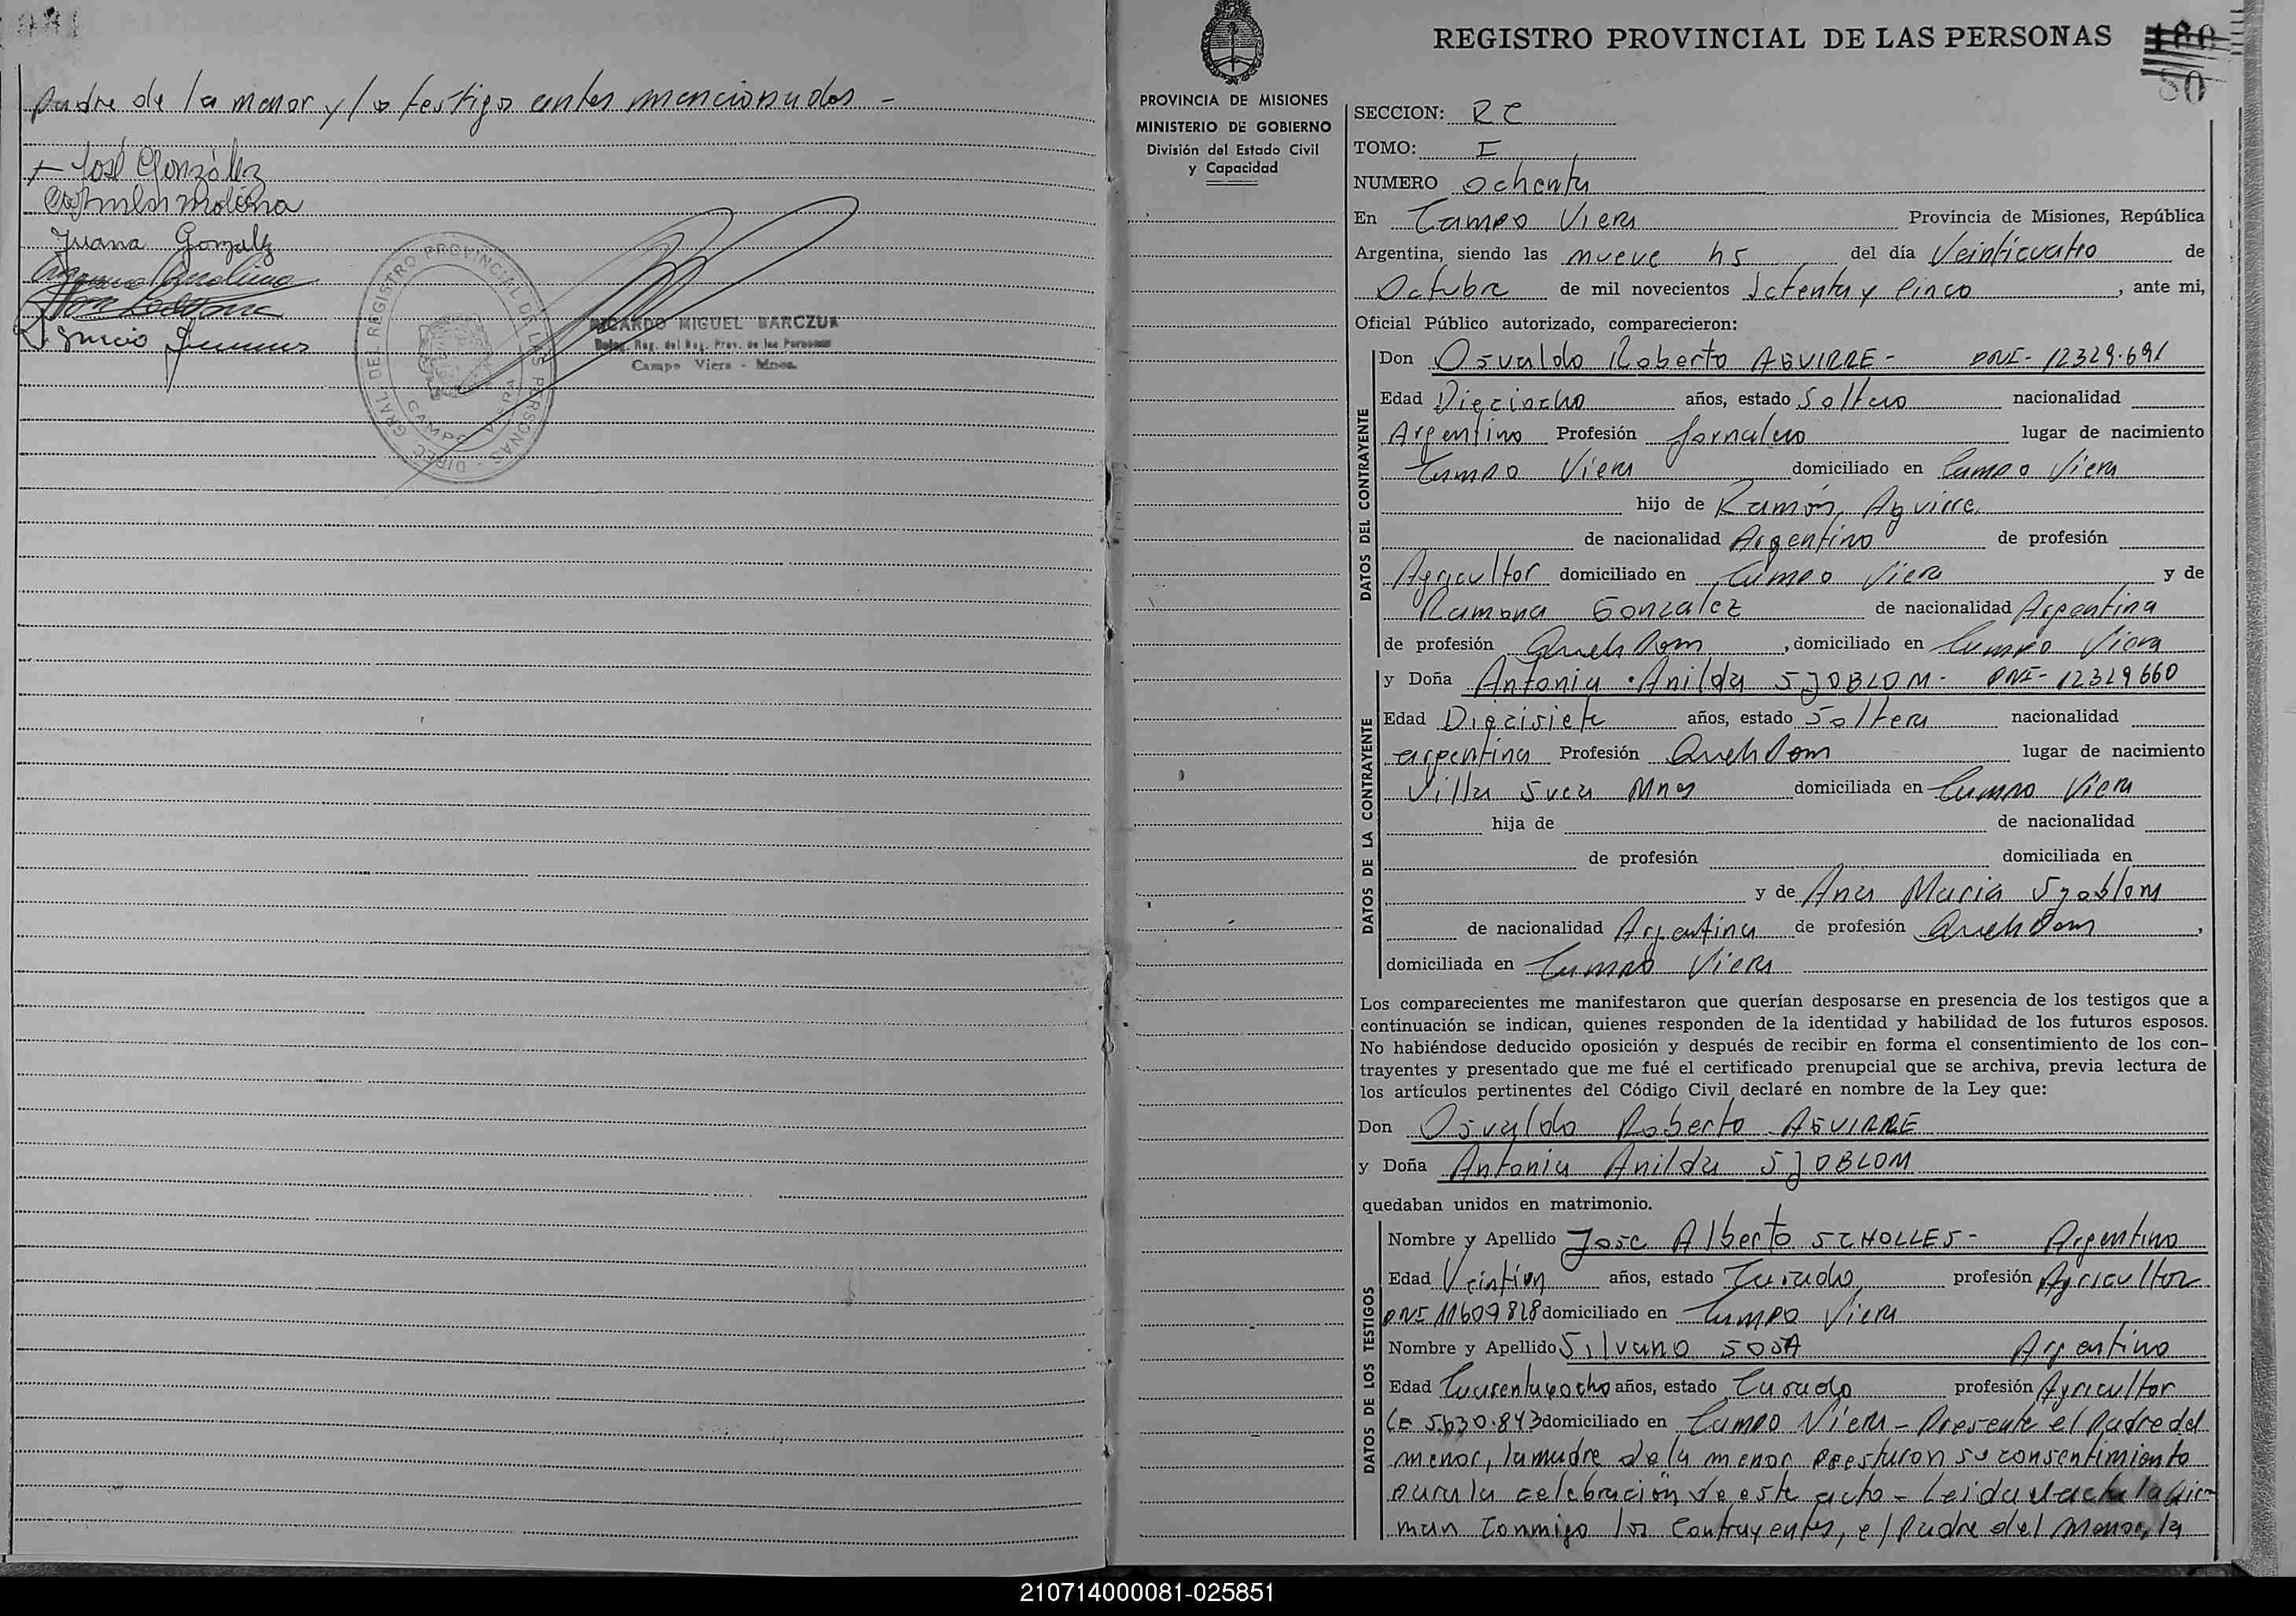 padre de la menor y los testigos antes mencionados -
José González
Juana Gonzalz
REGISTRO PROVINCIAL DE LAS PERSONAS - DIREC. GRAL. DE
CAMPO VIERA
RICARDO MIGUEL BARCZUK
Deleg. Reg. del Reg. Prov. de las Personas
Campo Viera - Mnes.
REGISTRO PROVINCIAL DE LAS PERSONAS
180
80
PROVINCIA DE MISIONES
MINISTERIO DE GOBIERNO
División del Estado Civil
y Capacidad
SECCION: RC
TOMO: I
NUMERO Ochenta
En Campo Viera Provincia de Misiones, República
Argentina, siendo las nueve hs del día Veinticuatro de
Octubre de mil novecientos Setenta y Cinco, ante mi,
Oficial Público autorizado, comparecieron:
DATOS DEL CONTRAYENTE
Don Osvaldo Roberto AGUIRRE - DNI - 12329.691
Edad Dieciocho años, estado Soltero nacionalidad
Argentino Profesión Jornalero lugar de nacimiento
Campo Viera domiciliado en Campo Viera
hijo de Ramón Aguirre
de nacionalidad Argentino de profesión
Agricultor domiciliado en Campo Viera y de
Ramona Gonzalez de nacionalidad Argentina
de profesión Queh Dom, domiciliado en Campo Viera
DATOS DE LA CONTRAYENTE
y Doña Antonia Anilda SJOBLOM - DNI - 12329660
Edad Diecisiete años, estado Soltera nacionalidad
argentina Profesión Queh Dom lugar de nacimiento
Villa Svea Mnes domiciliada en Campo Viera
hija de de nacionalidad
de profesión domiciliada en
y de Ana Maria Sjoblom
de nacionalidad Argentina de profesión Queh Dom,
domiciliada en Campo Viera
Los comparecientes me manifestaron que querían desposarse en presencia de los testigos que a
continuación se indican, quienes responden de la identidad y habilidad de los futuros esposos.
No habiéndose deducido oposición y después de recibir en forma el consentimiento de los con-
trayentes y presentado que me fué el certificado prenupcial que se archiva, previa lectura de
los artículos pertinentes del Código Civil declaré en nombre de la Ley que:
Don Osvaldo Roberto AGUIRRE
y Doña Antonia Anilda SJOBLOM
quedaban unidos en matrimonio.
DATOS DE LOS TESTIGOS
Nombre y Apellido Jose Alberto SCHOLLES - Argentino
Edad Veintiun años, estado Casado profesión Agricultor
DNI 11609828 domiciliado en Campo Viera
Nombre y Apellido Silvano SOSA Argentino
Edad Cuarentayocho años, estado Casado profesión Agricultor
LE 5.630.843 domiciliado en Campo Viera - Presente el Padre del
menor, la madre de la menor prestaron su consentimiento
para la celebración de este acto - Leida el acta la fir-
man conmigo los contrayentes, el Padre del Menor, la
210714000081-025851